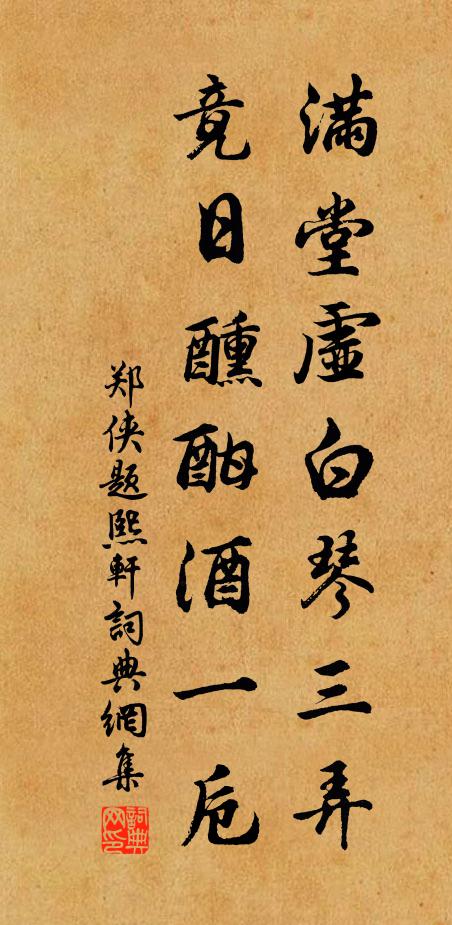 滿堂虛白琴三弄
竟日醺酣酒一卮
郑侠題熙軒詞典網集
詞典网印